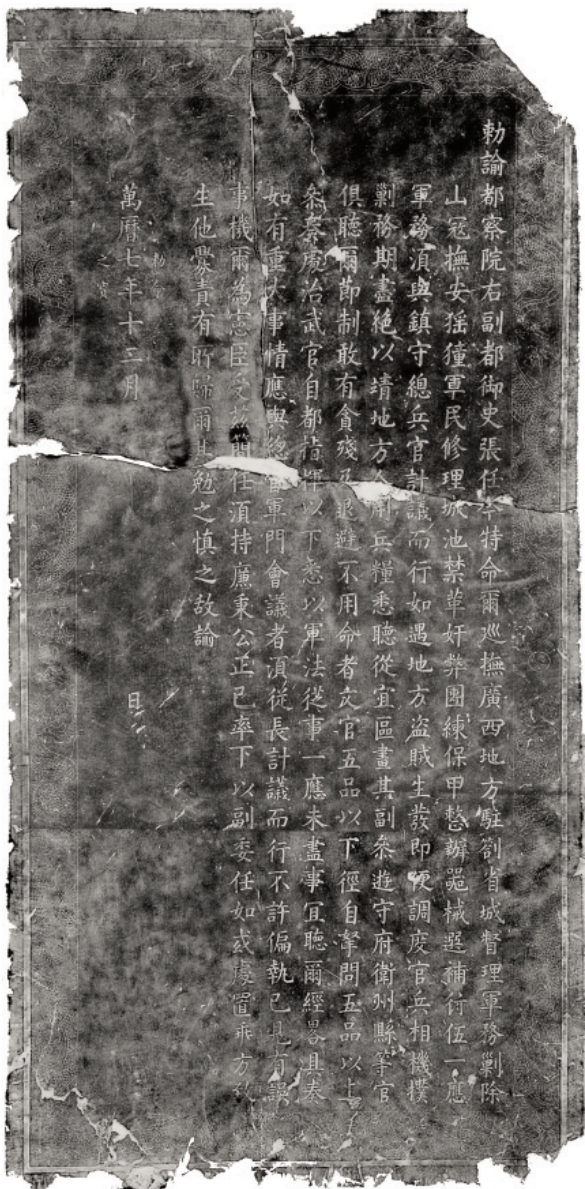 勅諭都察院右副都御史張任今特命爾巡撫廣西地方駐劄省城督理軍務剿除
山寇撫安猺獞軍民修理城池禁革奸弊團練保甲整辦噐械選補行伍一應
軍務湏與鎮守總兵官計議而行如遇地方盗賊生發即便調度官兵相機撲
剿務期盡絶以靖地方合用兵糧悉聽從宜區畫其副叅遊守府衛州縣等官
俱聽爾節制敢有貪殘及退避不用命者文官五品以下徑自拏問五品以上
叅奏處治武官自都指揮以下悉以軍法從事一應未盡事宜聽爾經畧具奏
如有重大事情應與總督軍門會議者湏從長計議而行不許偏執己見有誤
事機爾為憲臣受兹簡任湏持廉秉公正己率下以副委任如或處置乖方致
生他釁責有所歸爾其勉之慎之故諭
勅命
之寳
萬曆七年十二月 日